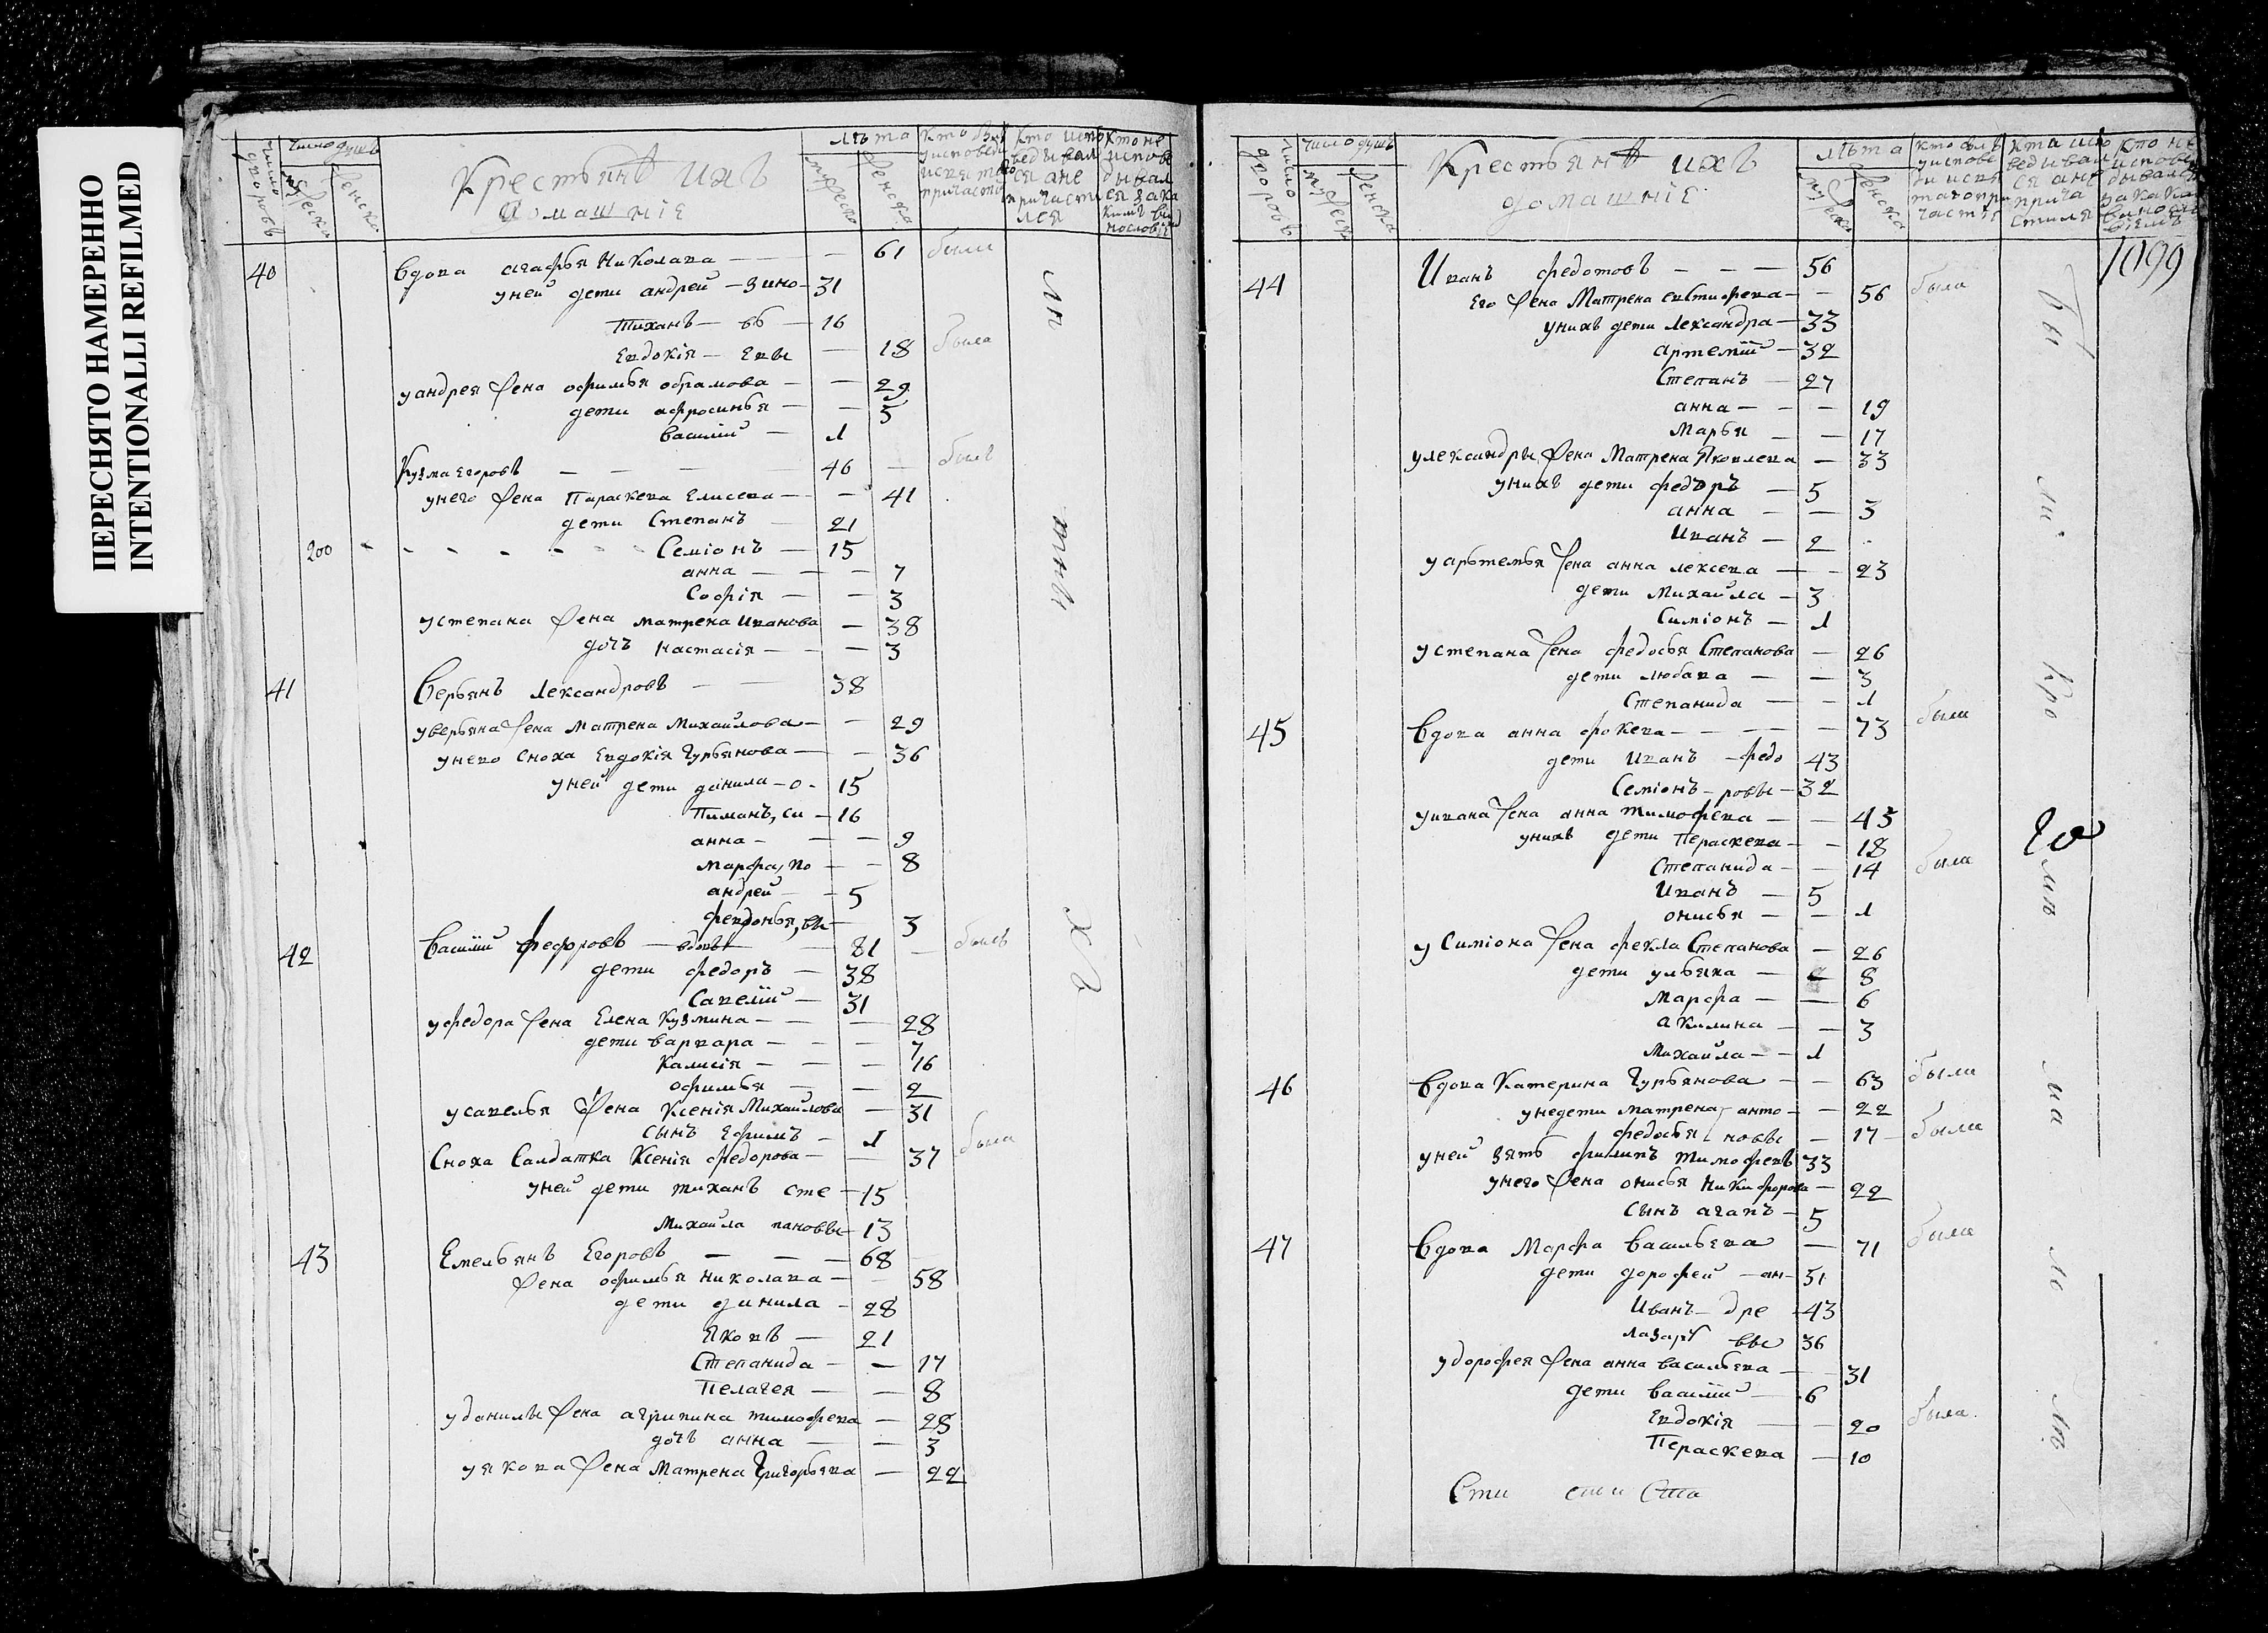 ПЕРЕСНЯТО НАМЕРЕННО
INTENTIONALLI REFILMED
число дворовъ
число душъ
мужеска
женска
Крестьянѣ ихъ
домашнiе
лѣта
мужеска
женска
40 вдова агафья Николаева — — — 61 была
уней дети андрей — зино — 31
Тиханъ — вь — 16
Евдокiя — евы — 18 была
уандрея жена офимья обрамова — — 29
дети афросинья — — 5
василий — 1
Кузма егоровъ — — — 46 — былъ
унего жена Параскева Елисеева — — 41
дети Степанъ — 21
200 Семiонъ — 15
анна — — — 7
Софiя — — 3
устепана жена матрена иванова — 38
дочь настасiя — — — 3
41 Верьянъ лександровъ — — 38
уверьяна жена матрена михайлова — — 29
унево сноха евдокiя гурьянова — — 36
уней дети данила — о — 15
Пиманъ, си — 16
анна — — — 9
марфа, по — — 8
андрей — — 5
февдонья, вы — 3
42 василий федоровъ — вдовъ — 81 — былъ
дети федоръ — 38
Савелий — 31
уфедора жена Елена Кузмина — — — 28
дети варвара — — — 7
Калисiя — — — 16
офимья — — 2
усавелья жена Ксенiя Михайлова — 31
сынъ ефимъ — 1
Сноха Салдатка Ксенiя федорова — — 37 была
уней дети тиханъ сте — 15
Михайла пановы — 13
43 Емельянъ Егоровъ — — — 68
жена офимья николаева — — 58
дети данила — 28
Яковъ — 21
Степанида — — 17
Пелагея — — 8
уданилы жена агрипина тимофеева — 28
дочь анна — — 3
уякова жена Матрена Григорьева — 22
число дворовъ
число душъ
мужеска
женска
Крестьянѣ ихъ
домашнiе
лѣта
мужеска
женска
1099
44 Иванъ федотовъ — — — 56
его жена Матрена евстифеева — — 56 была
унихъ дети лександра — 33
артемiй — 32
Степанъ — 27
анна — — — 19
Марья — — 17
улександры жена Матрена Яковлева — 33
унихъ дети федоръ — 5
анна — — 3
Иванъ — 2
уарьтемья жена анна лексеева — — 23
дети михайла — 3
Симiонъ — 1
устепана жена федосья Степанова — 26
дети любава — — 3
Степанида — — 1
45 вдова анна фокеева — — — — 73 были
дети Иванъ — федо 43
Семiонъ — ровы — 32
уивана жена анна тимофеева — — 45
унихъ дети Пераскева — — 18
Степанида — — 14 была
Иванъ — 5
онисья — — 1
уСимiона жена фекла Степанова — 26
дети ульяна — 8
марфа — — 6
акилина — — 3
михайла — — 1
46 вдова Катерина гурьянова — — 63 были
унедети матрена, анто — — 22
федосья новы — 17 — были
уней зять филипъ тимофеевъ 33
унего жена онисья Никифорова — 22
сынъ агапъ — 5
47 вдова Марфа васильева — 71 была
дети дорофей — ан — 51
Иванъ — дре — 43
лазарь вы 36
удорофея жена анна васильева — 31
дети василий — 6
Евдокiя — — 20 была
Пераскева — 10